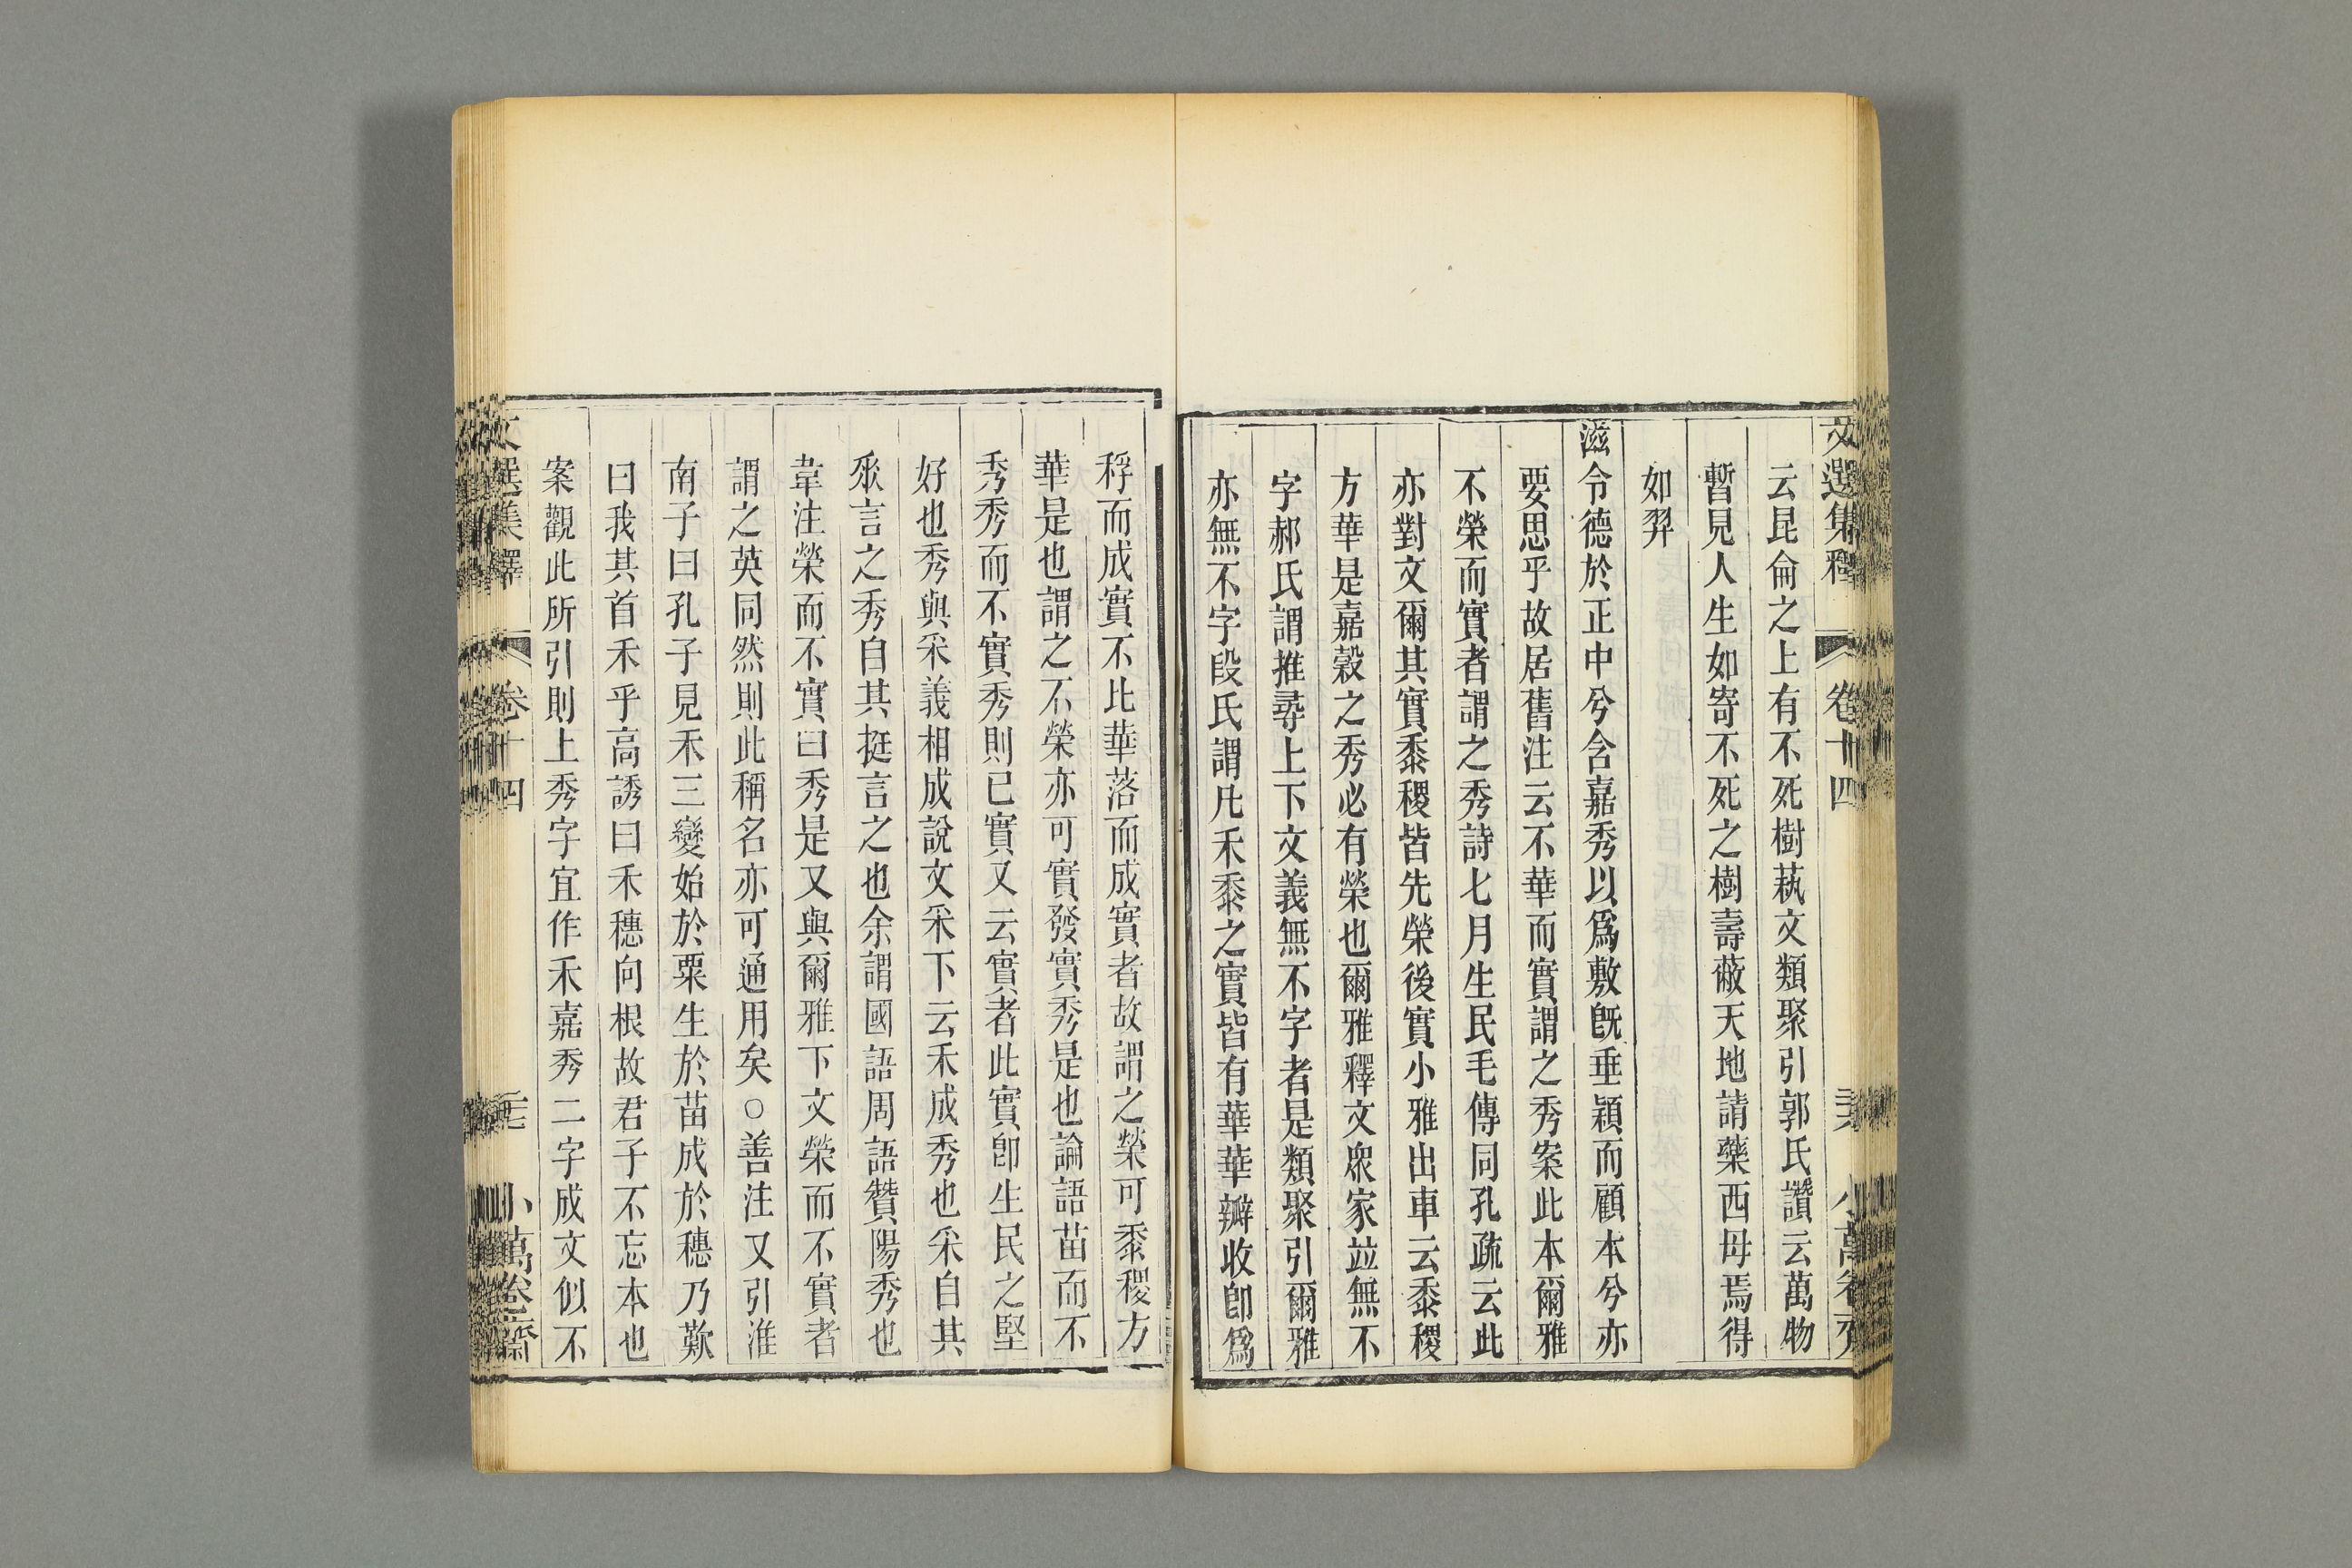 文選集釋 卷十四 小萬卷齋
云昆侖之上有不死樹蓺文類聚引郭氏讚云萬物
暫見人生如寄不死之樹壽蔽天地請藥西母焉得
如羿
滋令德於正中兮含嘉秀以爲敷旣垂穎而顧本兮亦
要思乎故居舊注云不華而實謂之秀案此本爾雅
不榮而實者謂之秀詩七月生民毛傳同孔疏云此
亦對文爾其實黍稷皆先榮後實小雅出車云黍稷
方華是嘉穀之秀必有榮也爾雅釋文眾家並無不
字郝氏謂推尋上下文義無不字者是類聚引爾雅
亦無不字段氏謂凡禾黍之實皆有華華瓣收卽爲
稃而成實不比華落而成實者故謂之榮可黍稷方
華是也謂之不榮亦可實發實秀是也論語苗而不
秀秀而不實秀則已實又云實者此實卽生民之堅
好也秀與采義相成說文采下云禾成秀也采自其
𠂢言之秀自其挺言之也余謂國語周語贊陽秀也
韋注榮而不實曰秀是又與爾雅下文榮而不實者
謂之英同然則此稱名亦可通用矣○善注又引淮
南子曰孔子見禾三變始於粟生於苗成於穗乃歎
曰我其首禾乎高誘曰禾穗向根故君子不忘本也
案觀此所引則上秀字宜作禾嘉秀二字成文似不
文選集釋 卷十四 小萬卷齋